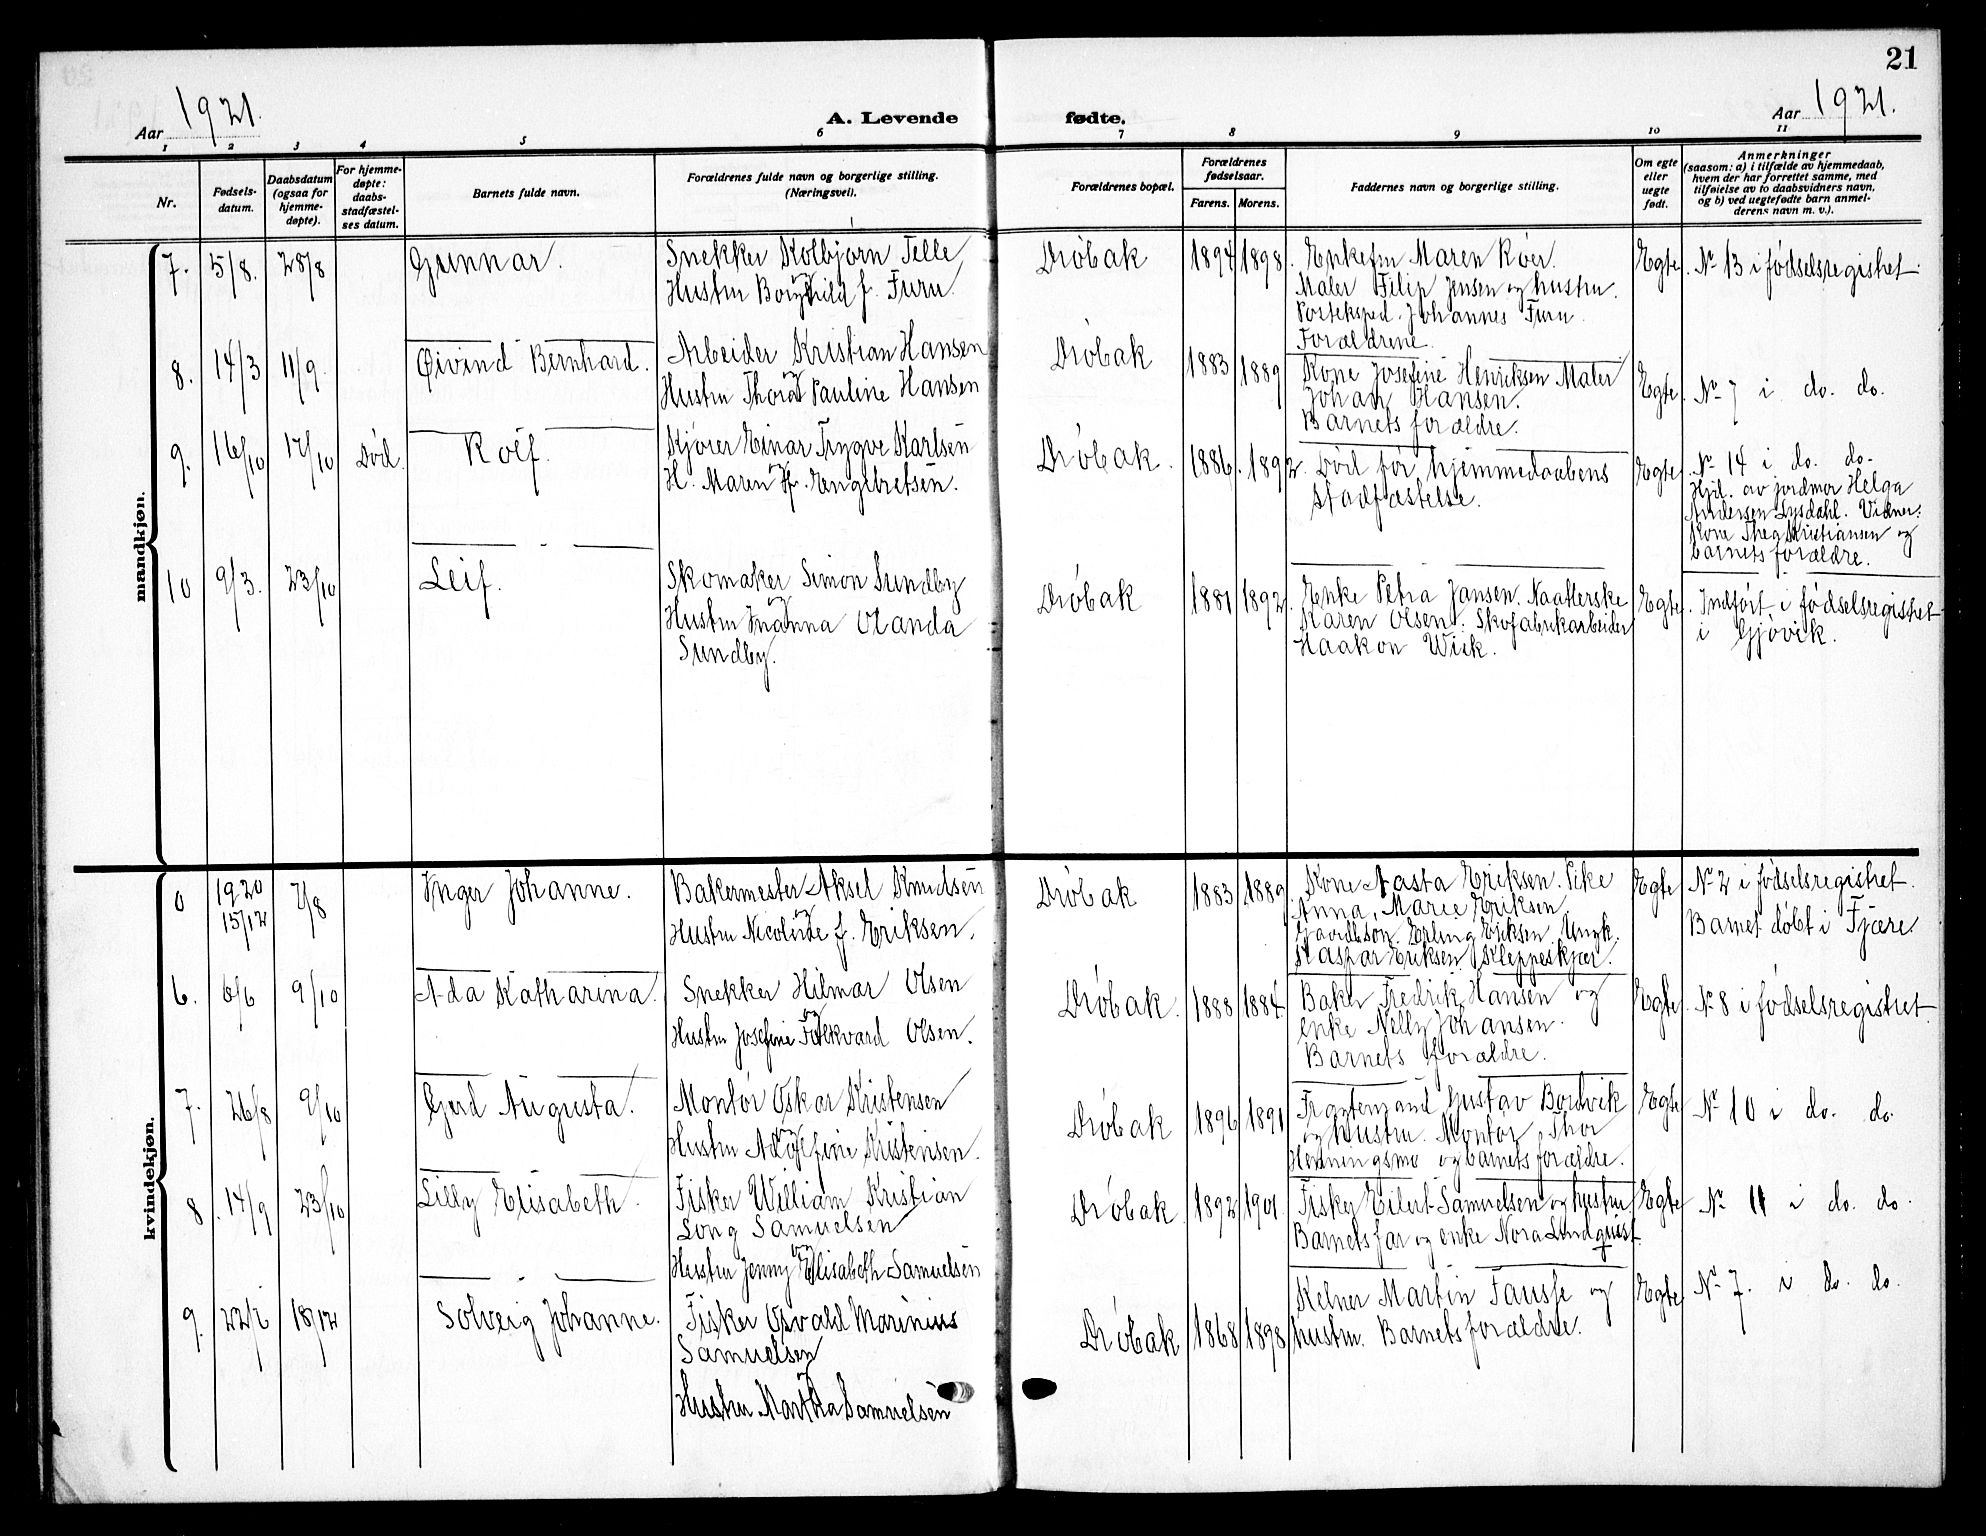 21
Aar 1921.
A. Levende fødte.
Aar 1921.
1 2 3 4 5 6 7 8 9 10 11
Nr.
Fødsels-
datum.
Daabsdatum
(ogsaa for
hjemme-
døpte).
For hjemme-
døpte:
daabs-
stadfæstel-
ses datum.
Barnets fulde navn.
Forældrenes fulde navn og borgerlige stilling.
(Næringsvei).
Forældrenes bopæl.
Forældrenes
fødselsaar.
Farens. Morens.
Faddernes navn og borgerlige stilling.
Om egte
eller
uegte
født.
Anmerkninger
(saasom: a) i tilfælde av hjemmedaab,
hvem der har forrettet samme, med
tilføielse av to daabsvidners navn,
og b) ved uegtefødte barn anmel-
derens navn m. v.).
mandkjøn.
7. 5/8. 28/8 Gunnar.
Snekker Kolbjørn Telle
og
Hustru Borghild f. Furu.
Drøbak 1894 1898.
Enkefru Maren Røer.
Maler Filip Jensen og hustru.
Posteksped. Johannes Furu.
Forældrene.
Egte. No 13 i fødselsregistret.
8. 14/3 11/9. Øivind Bernhard.
Arbeider Kristian Hansen
og
Hustru Thora Pauline Hansen
Drøbak 1883 1889
Kone Josefine Henriksen Maler
Johan Hansen.
Barnets forældre.
Egte. No 7 i do. do.
9. 16/10 17/10 død. Rolf.
Kjører Einar Trygve Karlsen
og
H. Maren f. Engebretsen.
Drøbak. 1886. 1892.
Død før hjemmedaabens
stadfæstelse.
Egte No 14 i do. do.
Hjd. av jordmor Helga
Andersen Lysdahl. Vidner:
Kone Thea Kristiansen og
barnets forældre.
10 9/3. 23/10 Leif.
Skomaker Simon Sundby
og
Hustru Inanna Olanda
Sundby.
Drøbak 1881 1892.
Enke Petra Jansen. Naatlerske
Karen Olsen. Skofabrikarbeider
Haakon Wiik.
Egte. Indført i fødselsregistret
i Gjøvik.
kvindekjøn.
0 1920
15/12 7/8 Inger Johanne.
Bakermester Aksel Knudsen
og
Hustru Nicoline f. Eriksen.
Drøbak 1883 1889
Kone Aasta Eriksen. Pike
Anna, Marie Eriksen
Erling Eriksen. Ungk.
Kaspar Eriksen, Kleppeskjær.
Egte No 2 i fødselsregistret.
Barnet døbt i Fjære
6. 6/6 9/10 Ada Katharina.
Snekker Hilmar Olsen
og
Hustru Josefine Folkvard Olsen.
Drøbak. 1888 1884
Baker Fredrik Hansen og
enke Nelly Johansen.
Barnets forældre.
Egte. No 8 i fødselsregistret.
7. 26/8 9/10 Gjerd Augusta.
Montør Oskar Kristensen
og
Hustru Adolfine Kristensen.
Drøbak 1896 1891
Frantsmand Gustav Bordvik
og hustru. Montør Thor
Henningsmo og barnets forældre.
Egte No 10 i do. do.
8 14/9 23/10 Lilly Elisabeth.
Fisker William Kristian
Long Samuelsen
og
Hustru Jenny Elisabeth Samuelsen
Drøbak. 1892 1901.
Fisker Eilert Samuelsen og hustru
Barnets far og enke Nora Lindquist.
Egte No 11 i do. do.
9. 22/6 18/12 Solveig Johanne.
Fisker Osvald Marinius
Samuelsen
og
Hustru Martha Samuelsen
Drøbak 1868 1898
Kelner Martin Fausse og
hustru. Barnets forældre.
Egte No 7. i do. do.